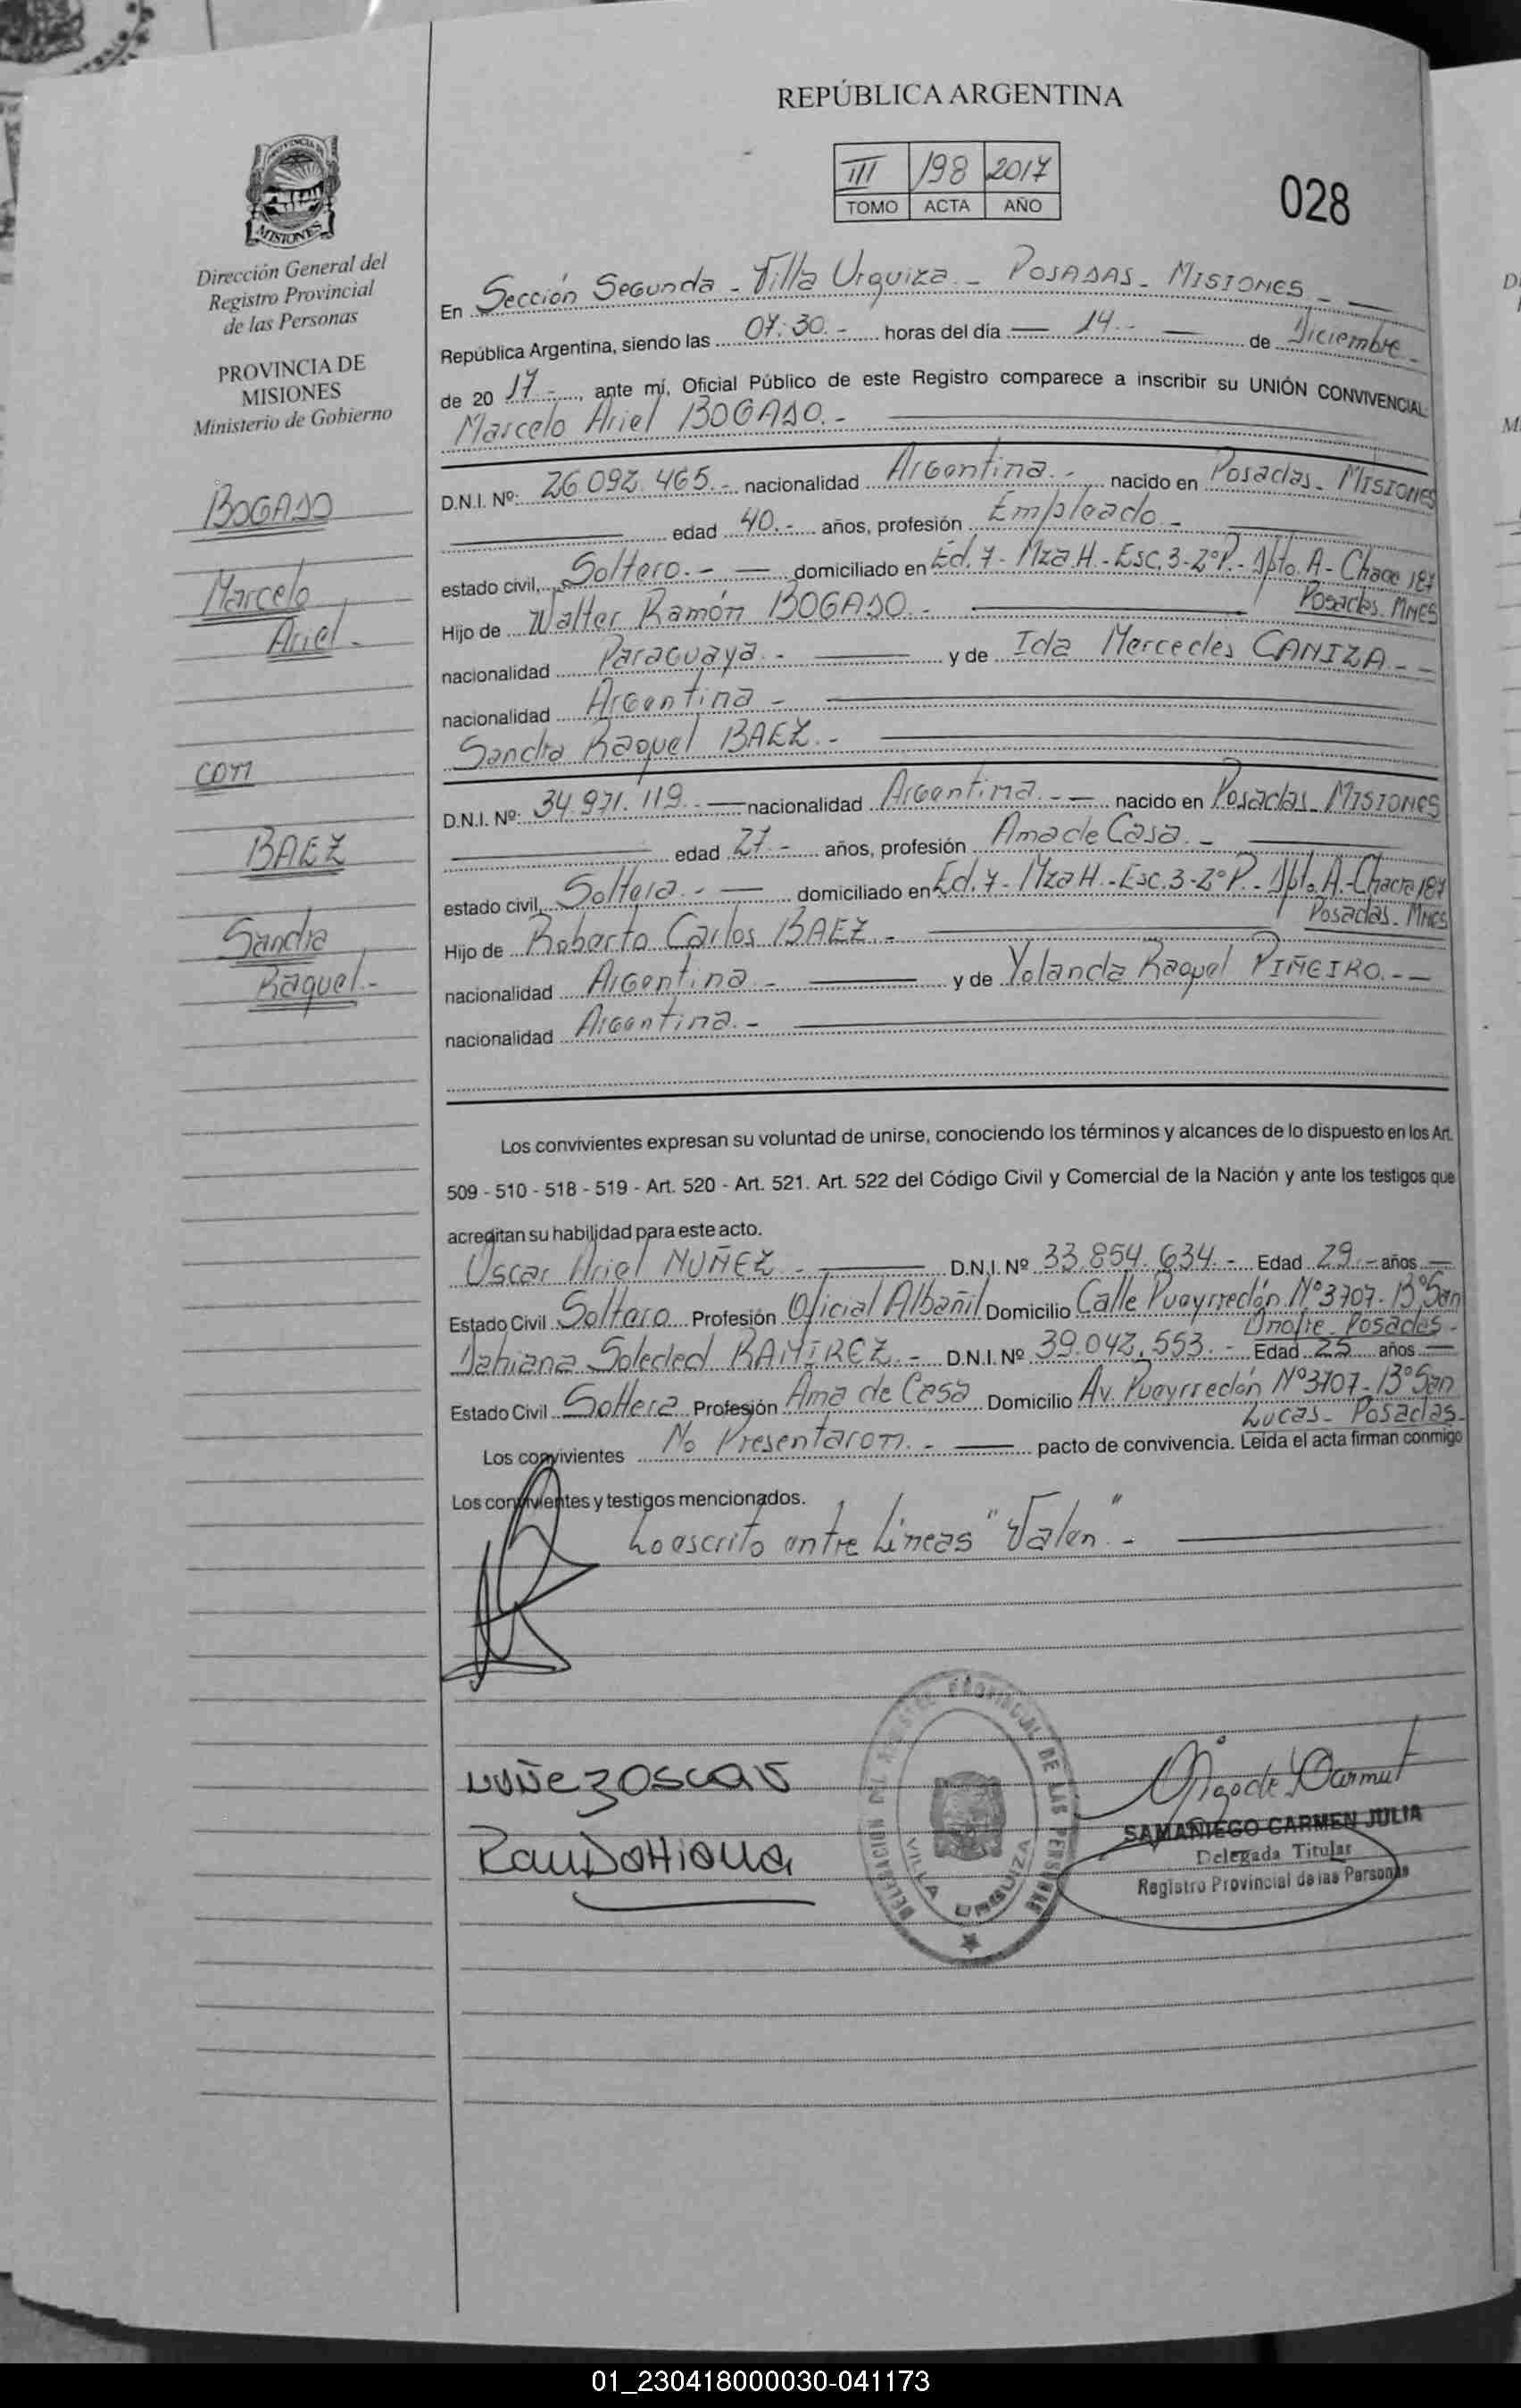 REPÚBLICA ARGENTINA
III 198 2017
TOMO ACTA AÑO
028
MISIONES
Dirección General del
Registro Provincial
de las Personas
PROVINCIA DE
MISIONES
Ministerio de Gobierno
BOGADO
Marcelo
Ariel.-
con
BAEZ
Sandra
Raquel.-
En Sección Segunda - Villa Urquiza - POSADAS - MISIONES -
República Argentina, siendo las 07:30.- horas del día 14.- de Diciembre -
de 20 17.-, ante mí, Oficial Público de este Registro comparece a inscribir su UNIÓN CONVIVENCIAL
Marcelo Ariel BOGADO.-
D.N.I. Nº: 26.092.465.- nacionalidad Argentina.- nacido en Posadas - MISIONES
edad 40.- años, profesión Empleado -
estado civil, Soltero.- domiciliado en Ed. 7 - Mza H.- Esc. 3 - 2º P.- Dpto. A - Chacra 187
Posadas - MNES
Hijo de Walter Ramón BOGADO.-
nacionalidad Paraguaya.- y de Ida Mercedes CANIZA.-
nacionalidad Argentina -
Sandra Raquel BAEZ.-
D.N.I. Nº: 34.971.119.- nacionalidad Argentina.- nacido en Posadas MISIONES
edad 27.- años, profesión Ama de Casa.-
estado civil, Soltera.- domiciliado en Ed. 7 - Mza H.- Esc. 3 - 2º P.- Dpto. A.- Chacra 187
Posadas - MNES
Hijo de Roberto Carlos BAEZ.-
nacionalidad Argentina - y de Yolanda Raquel PIÑEIRO.-
nacionalidad Argentina.-
Los convivientes expresan su voluntad de unirse, conociendo los términos y alcances de lo dispuesto en los Art.
509 - 510 - 518 - 519 - Art. 520 - Art. 521. Art. 522 del Código Civil y Comercial de la Nación y ante los testigos que
acreditan su habilidad para este acto.
Oscar Ariel NUÑEZ.- D.N.I. Nº 33.854.634.- Edad 29.- años
Estado Civil Soltero Profesión Oficial Albañil Domicilio Calle Pueyrredón Nº 3707 - Bº San
Onofre - Posadas -
Dahiana Soledad RAMIREZ.- D.N.I. Nº 39.042.553.- Edad 25 años
Estado Civil Soltera Profesión Ama de Casa Domicilio Av. Pueyrredón Nº 3707 - Bº San
Lucas - Posadas -
Los convivientes No Presentaron.- pacto de convivencia. Leída el acta firman conmigo
Los convivientes y testigos mencionados.
Lo escrito entre Líneas "Valen".-
NUÑEZ OSCAR
DELEGACION DEL REGISTRO PROVINCIAL DE LAS PERSONAS
VILLA URQUIZA
SAMANIEGO CARMEN JULIA
Delegada Titular
Registro Provincial de las Personas
01_230418000030-041173